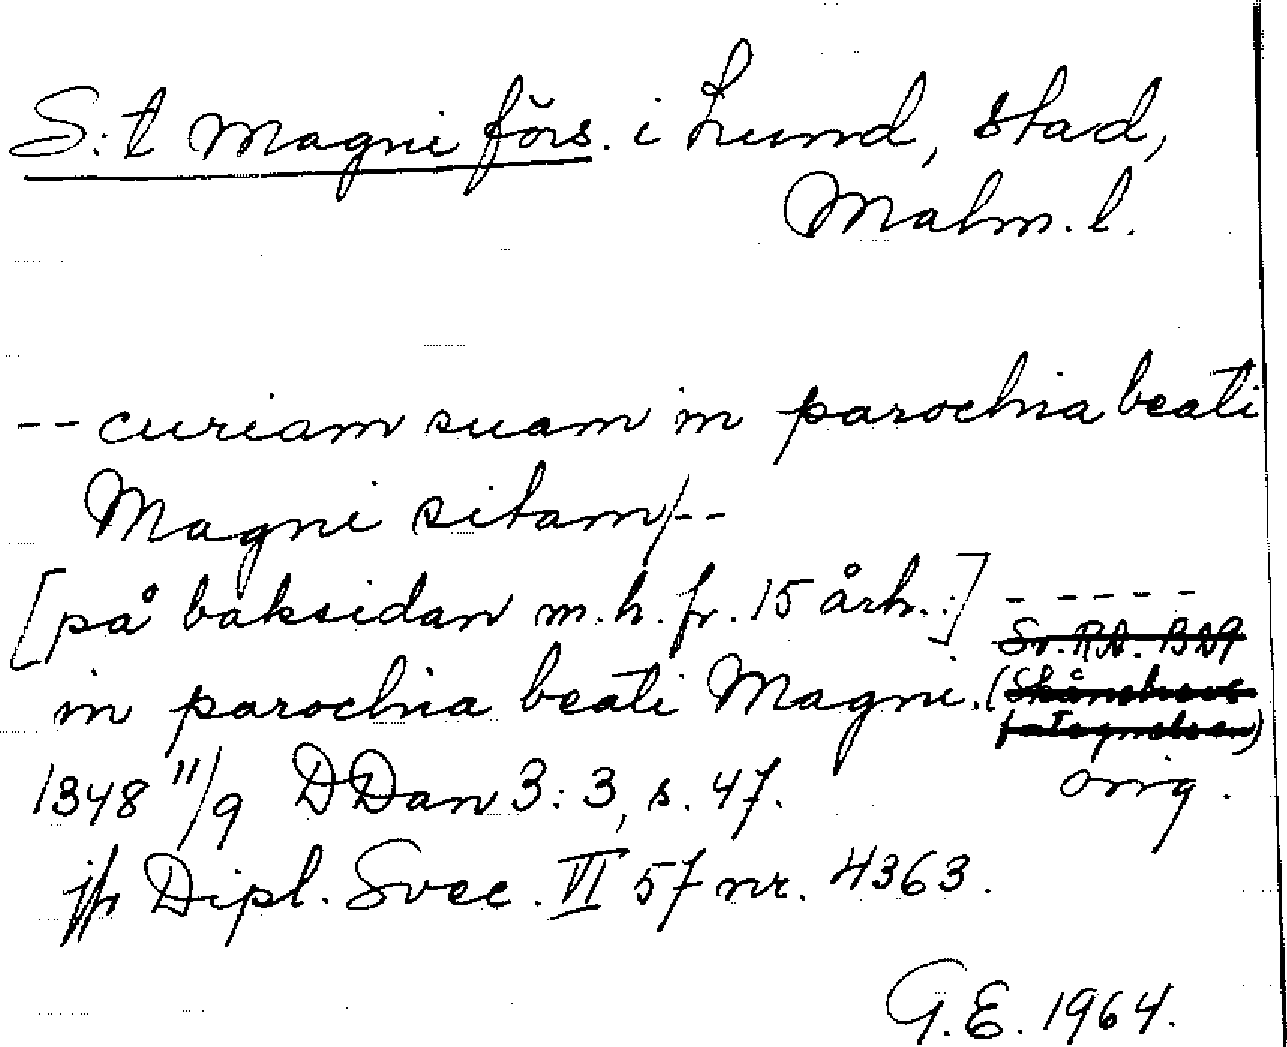 S:t Magni förs. i Lund, stad,
Malm. l.
-- curiam suam in parochia beati
Magni sitam/--
[på baksidan m.h. fr. 15 årh.:] -----
Sv. RA. BN9
in parochia beati Magni. (Skånebreve
fategnelsen)
1348 11/9 DDan 3:3, s. 47. orig.
jfr Dipl. Svec. VI 57 nr. 4363.
G.E. 1964.